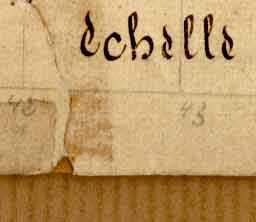 echelle
43 43